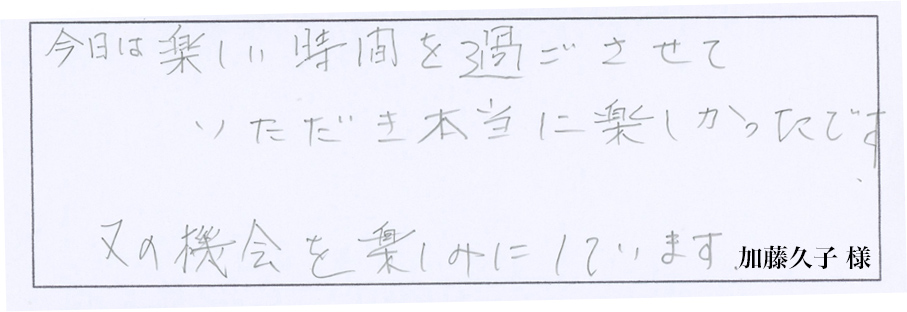 今日は楽しい時間を過ごさせて
いただき本当に楽しかったです.
又の機会を楽しみにしています.
加藤久子 様